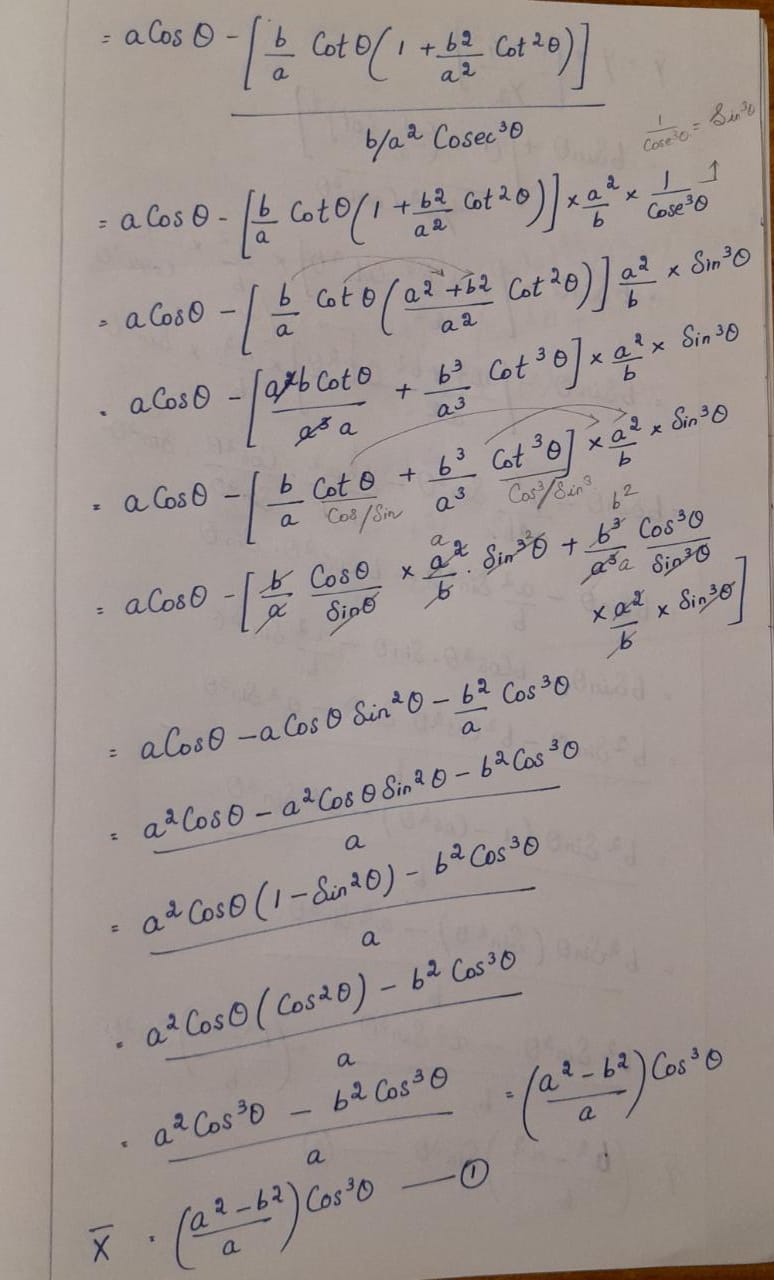 = a Cos θ - [b/a Cot θ (1 + b2/a2 Cot2θ)]
b/a2 Cosec3θ
1/Cose3θ = Sin3θ
= a Cos θ - [b/a Cot θ (1 + b2/a2 Cot2θ)] × a2/b × 1/Cose3θ ↑
= a Cos θ - [b/a Cot θ (a2 + b2/a2 Cot2θ)] a2/b × Sin3θ
. a Cos θ - [a2b Cot θ/a3 a + b3/a3 Cot3θ] × a2/b × Sin3θ
= a Cos θ - [b/a Cot θ + b3/a3 Cot3θ] × a2/b × Sin3θ
Cos/Sin Cos3/Sin3
a b2
= a Cos θ - [b/a Cos θ/Sin θ × a2/b . Sin32θ + b3/a3a Cos3θ/Sin3θ
× a2/b × Sin3θ]
= a Cos θ - a Cos θ Sin2θ - b2/a Cos3θ
= a2 Cos θ - a2 Cos θ Sin2θ - b2 Cos3θ
a
= a2 Cos θ (1 - Sin2θ) - b2 Cos3θ
a
. a2 Cos θ (Cos2θ) - b2 Cos3θ
a
= a2 Cos3θ - b2 Cos3θ = (a2 - b2/a) Cos3θ
a
X̄ . (a2 - b2/a) Cos3θ — ①